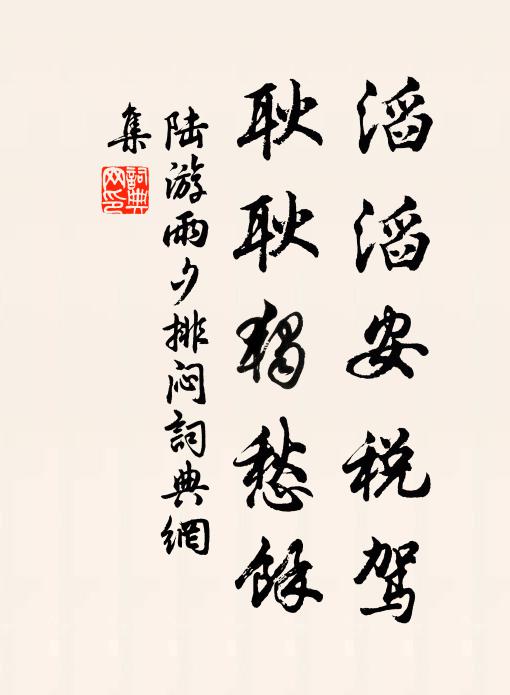 滔滔安税驾
耿耿独愁馀
陆游雨夕排闷詞典網
集
詞典网印